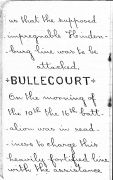 us that the supposed
impregnable Hinden-
burg line was to be
attacked.
+BULLECOURT+
On the morning of
the 10th the 16th batt-
alion was in read-
iness to charge this
heavily fortified line
with the assistance